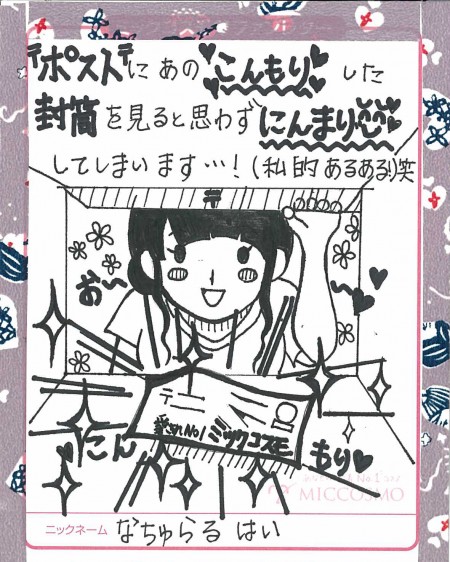 〒ポスト〒にあの♥こんもり♥した
封筒を見ると思わずにんまり
してしまいます…!(私的あるある!)笑
〒
お〜
〜
〒
愛されNo.1 ミックコスモ
こん
もり
MICCOSMO
ニックネーム なちゅらる はい